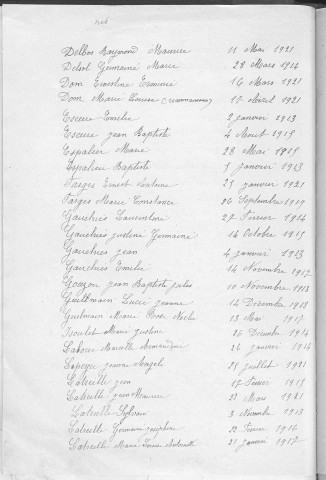 Delbos Raymond Maurice 11 Mai 1921
Delsol Germaine Marie 28 Mars 1914
Dom Ernestine 16 Mars 1921
Dom Marie Louise 17 Avril 1921
Escure Emilie 2 janvier 1913
Escure jean Baptiste 4 Aout 1915
Espalier Marie 28 Mai 1915
Espalieu Baptiste 5 janvier 1913
Farges Ernest 25 janvier 1921
Farges Marie Constance 06 Septembre 1919
Gauchés Laurentine 27 Fevrier 1914
Gauchés justine Germaine 16 Octobre 1915
Gauchés jean 4 janvier 1913
Gauchés Emilie 14 Novembre 1917
Gouzon jean Baptiste jules 10 Novembre 1913
Guillmain Lucie jeanne 14 Decembre 1918
Guilmain Marie Rose 13 Mai 1917
Marie justine 26 Decembre 1914
Marcelle 26 janvier 1914
Lapeyre jeanne Angele 25 juillet 1921
Latreille jean 17 Fevrier 1915
Latreille jean Maurice 23 Mars 1921
Latreille Sylvain 3 Novembre 1913
Latreille Germain 22 Fevrier 1914
Latreille Marie Louise Antoinette 21 janvier 1917